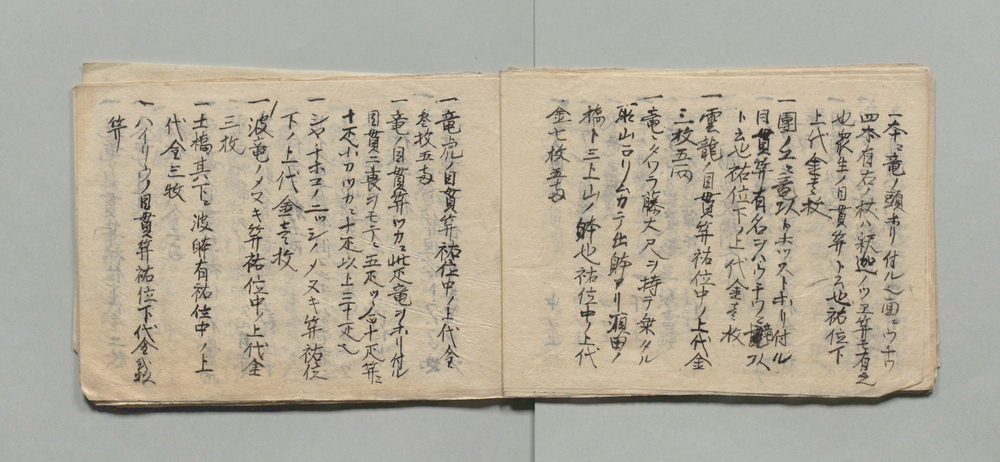 一本ニ竜ノ頭ホリ付ル也面ニウチワ
四本有右ノ杖ハ釈迦ノツヱ笄モ有之
也衆生ノ目貫笄ト云也祐位下
上代金壱枚
一團ノ上ニ竜 ホツストホリ付ル
目貫笄有名ヲハウチワ
ト云也祐位下ノ上代金壱枚
一雲龍ノ目貫笄祐位中ノ上代金
三枚五両
一竜ニタワラ藤太尺ヲ持テ乗タル
ヨリムカテ出 アリ ノ
橋ト三上山ノ 也祐位中ノ上代
金七枚五両
一竜虎ノ目貫笄祐位中ノ上代金
参枚五両
一竜ノ目貫笄ツカニ此疋竜ヲホリ付ル
目貫二 ヲモテニ五疋ツヽ合十疋笄ニ
十疋小刀ツカニ十疋以上三十疋也
一シヤチホコノ二ツシノヌキ笄祐位
下ノ上代金壱枚
一波竜ノヌキ笄祐位中ノ上代金
三枚
一土橋其下ニ波 有祐位中ノ上
代金三枚
一ハイリウノ目貫笄祐位下代金弐枚
笄